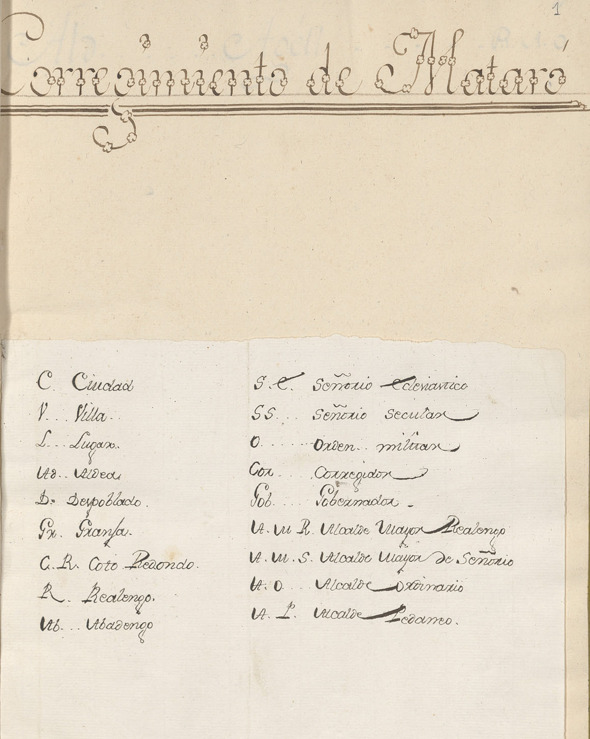 1
Corregimiento de Mataró
C. Ciudad
V... Villa.
L... Lugar.
Ad.. Aldea
D. Despoblado.
Gr. Granja.
C. R. Coto Redondo.
R. Realengo.
Ab... Abadengo
S. E. Señorio Eclesiastico
S S... Señorio Secular
O....... Orden militar
Cor... Corregidor
Gob... Gobernador.
A. M. R. Alcalde Mayor Realengo
A. M. S. Alcalde Mayor de Señorio
A. O... Alcalde Ordinario
A. P. Alcalde Pedaneo.